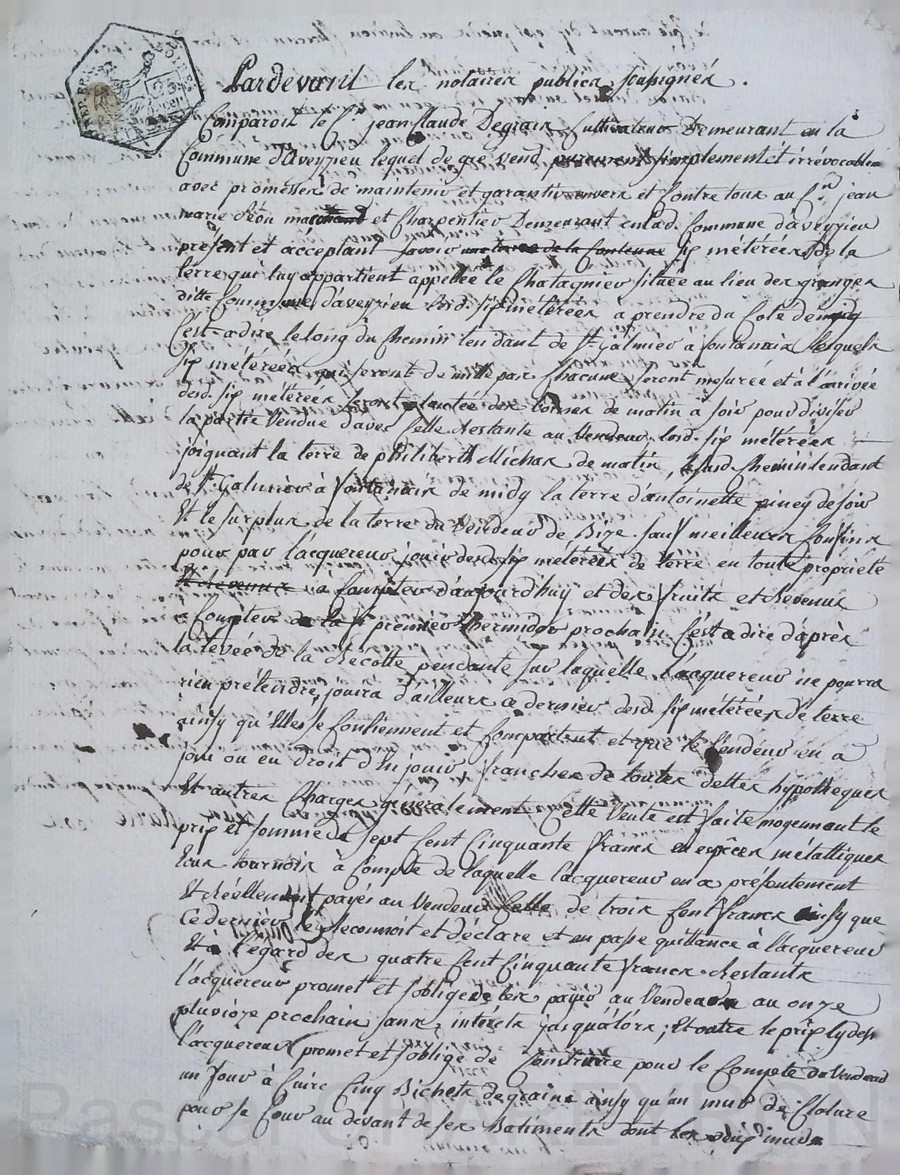 Pardevant les notaires publics soussignés.
Comparoit le Cn jean Claude Degrais Cultivateur Demeurant en la
Commune d'aveyzieu lequel de gré vend purement simplement et irrévocablemt
avec promesses de maintenir et garantir envers et Contre tous au Cn jean
marie et Charpentier Demeurant en lad. Commune d'aveyzieu
présent et acceptant Savoir une terre de la Contenue six métérées de la
terre qui luy appartient appellée le Chatagnier située au lieu des granges
ditte Commune d'aveyzieu lesd. six métérées a prendre du Coté de midy
C'est-a dire le long du Chemin tendant de St Galmier à fontanais lesquels
six métérées qui seront de mille pas Chacune seront mesurées et à l'arrivée
desd. six métérées seront plantée des bornes de matin à soir pour diviser
la partie Vendue d'avec Celle Restante au Vendeur. lesd. six métérées
joignant la terre de philiberth Michas de matin, Chemin tendant
de St Galmier à fontanais de midy la terre d'antoinette piney de soir
Et le surplus de la terre du Vendeur de Bize. sauf meilleurs Confins
pour par l'acquereur jouir desd. six métérées de terre en toute propriété
Et Revenus à Compter d'aujourd'huy et des fruits et Revenus
a Compter de la premier thermidor prochain C'est a dire d'après
la levée de la Recolte pendante sur laquelle l'acquereur ne pourra
rien prétendre, jouira d'ailleurs ce dernier desd. six métérées de terre
ainsy qu'Elles se Contiennent et Comportent et que le Vendeur en a
joui ou eu Droit d'En jouir franches de toutes dettes hypotheques
Et autres Charges généralement. Cette Vente est faite moyennant le
prix et somme de sept Cent Cinquante francs en espèces métalliques
Ecus tournois à Compte de laquelle l'acquereur en a présentement
Et Réellement payés au Vendeur Celle de trois Cent francs ainsy que
Ce dernier le Reconnoit et déclare et en passe quittance à l'acquereur
Et à l'égard des quatre Cent Cinquante francs Restants
l'acquereur promet et s'oblige de les payer au Vendeur au onze
pluvioze prochain sans intérets jusqu'alors; Et outre le prix Cy dess
l'acquereur promet et s'oblige de Construire pour le Compte du Vendeur
un four à Cuire Cinq Bichets de graine ainsy qu'un mur de Cloture
pour se Couvr au devant de ses Batiments dont les
Pascal CHAREYRON